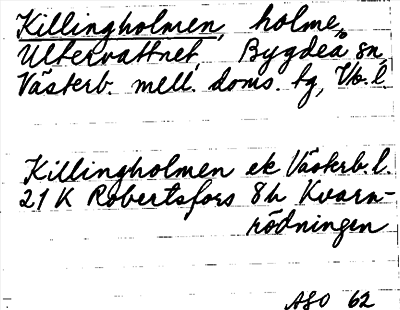 Killingholmen, holme,
Ultervattnet, Bygdeå sn,
Västerb. mell. doms. tg, Vb. l.
Killingholmen ek Västerb. l.
21 K Robertsfors 8h Kvarn-
rödningen
ASO 62